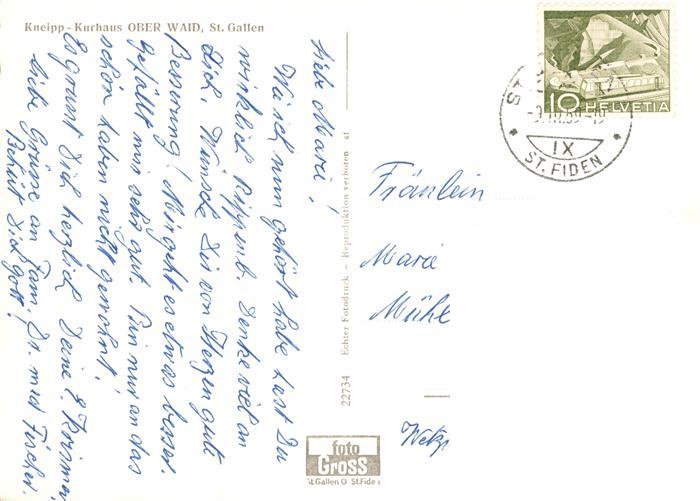 Kneipp - Kurhaus OBER WAID, St. Gallen
Liebe Marei!
Wie ich nun gehört habe hast Du
wirklich Rippenb. Denke viel an
Dich. Wünsche Dir von Herzen gute
Besserung! Mir geht es etwas besser.
Gefällt mir sehr gut. Bin nur an das
schön haben nicht gewohnt!
Es grüsst Dich herzlich Deine E.
Liebe Grüsse an Fam. Dr. med Fischer.
Behüt Dich Gott!
22734 Echter Fotodruck — Reproduktion verboten
foto
Gross
St.Gallen O St.Fiden
10 HELVETIA
ST. FIDEN
IX
Fräulein
Marei
Mühl